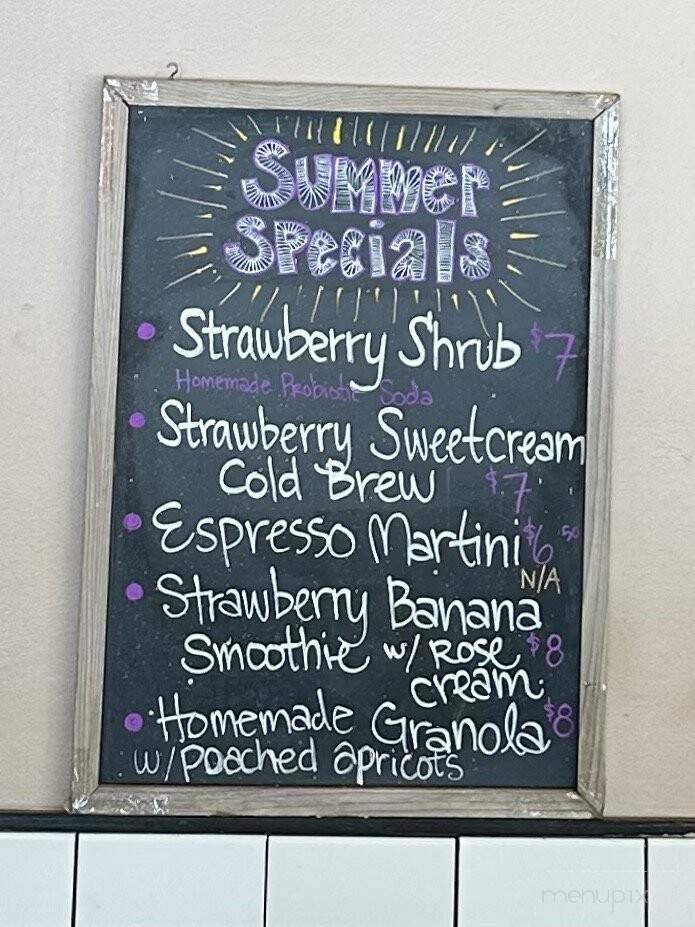 Summer
Specials
• Strawberry Shrub $7
Homemade Probiotic Soda
• Strawberry Sweetcream
Cold Brew $7
• Espresso Martini $6.50
N/A
• Strawberry Banana
Smoothie w/ Rose $8
cream
• Homemade Granola $8
w/ poached apricots
menupix